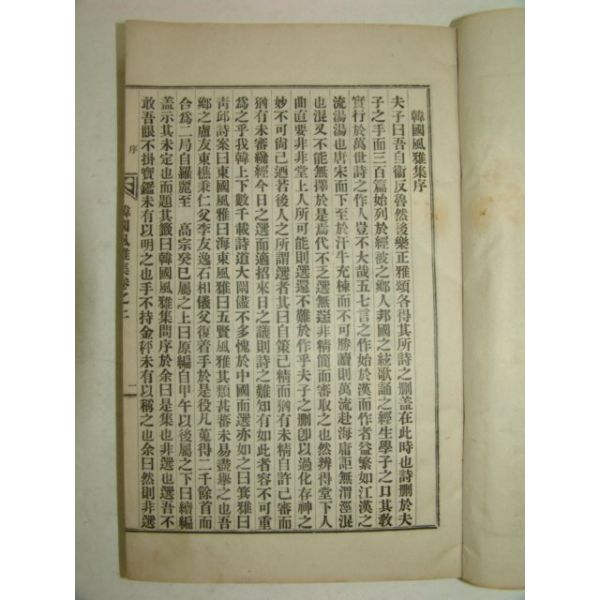 韓國風雅集序
夫子曰吾自衛反魯然後樂正雅頌各得其所詩之刪盖在此時也詩刪於夫
子之手而三百篇始列於經波之鄕人邦國之絃歌誦之經生學子之口其敎
實行於萬世詩之作人豈不大哉五七言之作始於漢而作者益繁如江漢之
流湯湯也唐宋而下至於汗牛充棟而不可勝讀則萬流赴海庸詎無渭涇混
混也混又不能無擇於是焉代不乏選無選非精簡而審取之也然辨得堂下人
曲直要非堂上人所可能則選還不難於作乎夫子之刪卽以過化存神之
妙不可尙已迺若後人之所謂選者其曰自策已精而猶有未精自許已審而
猶有未審纔經今日之選而適招來日之議則詩之難知有如此者容不可重
爲之乎我韓上下數千載詩道大闡儘不多愧於中國而選亦如之曰箕雅曰
靑邱詩案曰東國風雅曰海東風雅曰五賢風雅其類甚蕃未易盡擧之也吾
鄕之盧友東樵秉仁父李友逸石相儀父復着手於是役凡蒐得二千餘首而
合爲二局自羅麗至 高宗癸巳屬之上曰原編自甲午以後屬之下曰續編
盖示其未定也而題其籤曰韓國風雅集問序於余曰是集也非選也選吾不
敢吾眼不掛寶鑑未有以明之也手不持金秤未有以稱之也余曰然則非選
序
韓國風雅集卷之一
二